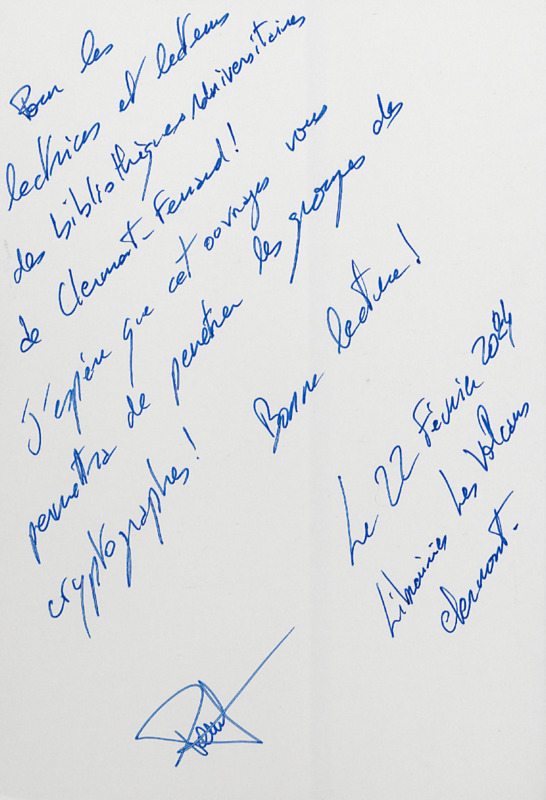 Pour les
lectrices et lecteurs
des bibliothèques universitaires
de Clermont-Ferrand!
J'espère que cet ouvrages vous
permettra de penétrer les groupes des
cryptographes!
Bonne lecture!
Le 22 Février 2024
Librairies Les Volcans
Clermont-